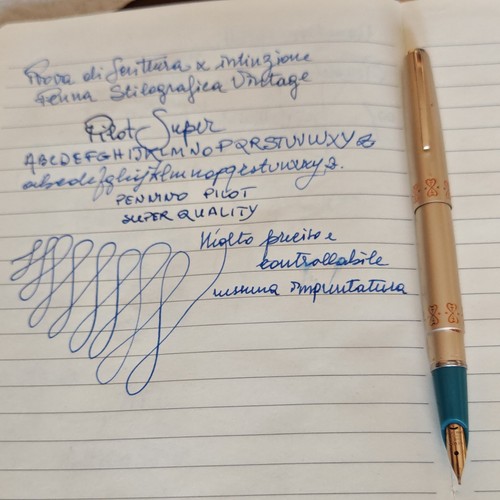 Prova di Scrittura x intinzione
Penna Stilografica Vintage
Pilot Super
ABCDEFGHIJKLMNOPQRSTUVWXYZ
abcdefghijklmnopqrstuvwxyz.
PENNINO PILOT
SUPER QUALITY
Molto preciso e
controllabile
nessuna impuntatura